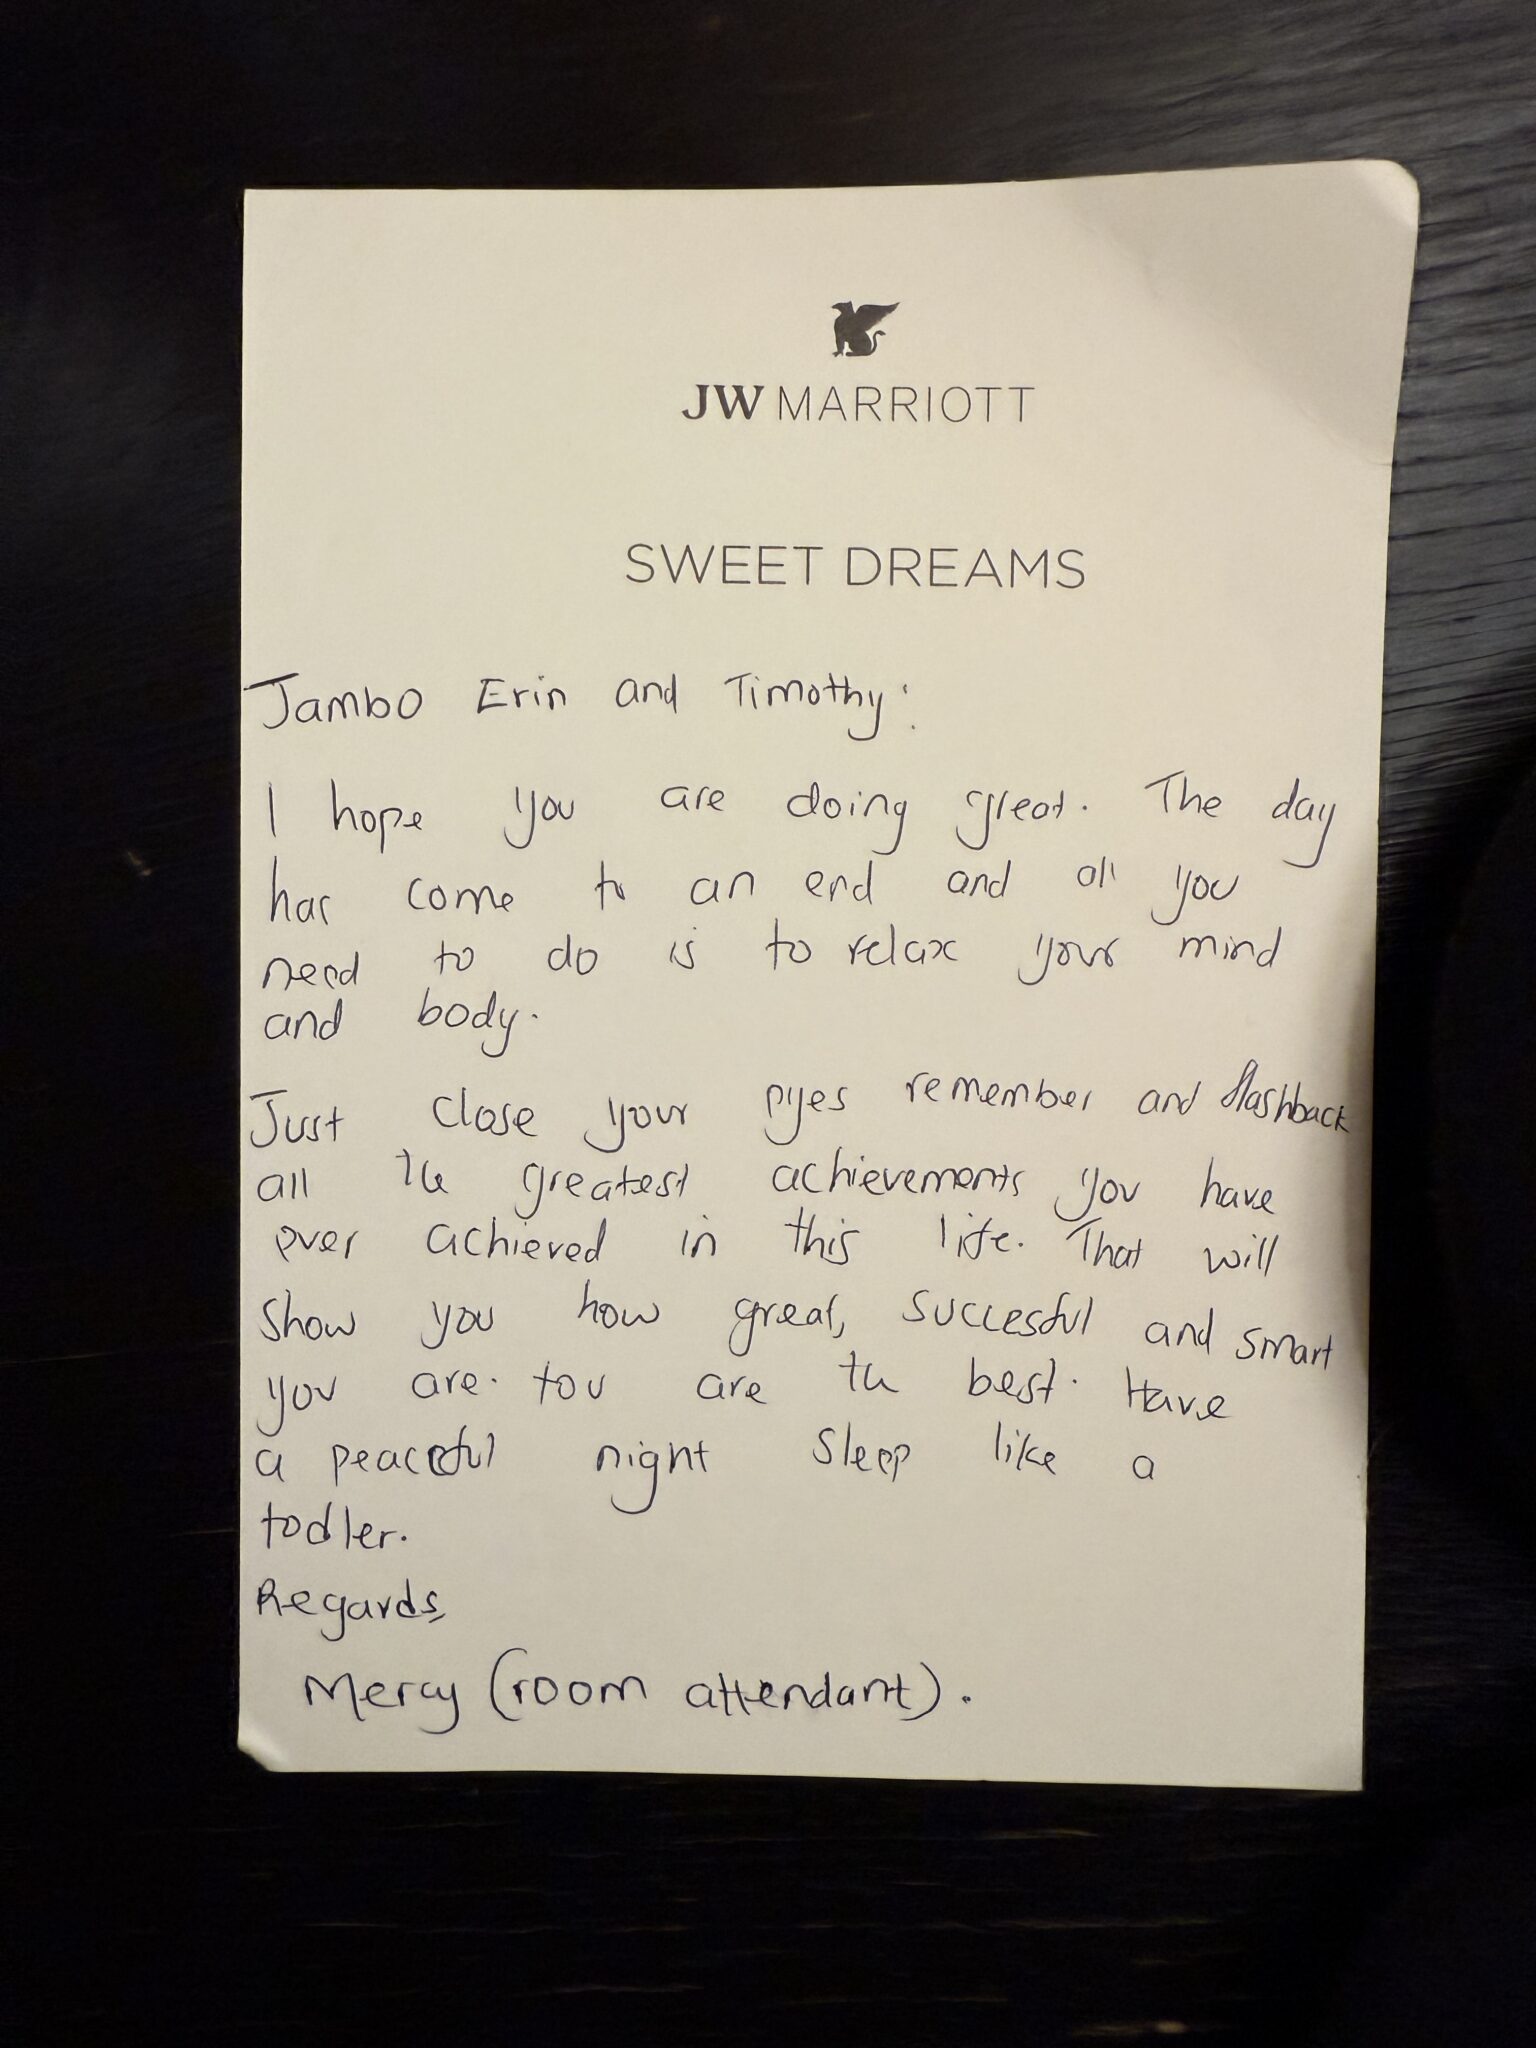 JW MARRIOTT
SWEET DREAMS
Jambo Erin and Timothy:
I hope you are doing great. The day
has come to an end and all you
need to do is to relax your mind
and body.
Just close your eyes remember and flashback
all the greatest achievements you have
ever achieved in this life. That will
show you how great, succesful and smart
you are. You are the best. Have
a peaceful night sleep like a
todler.
Regards,
Mercy (room attendant).